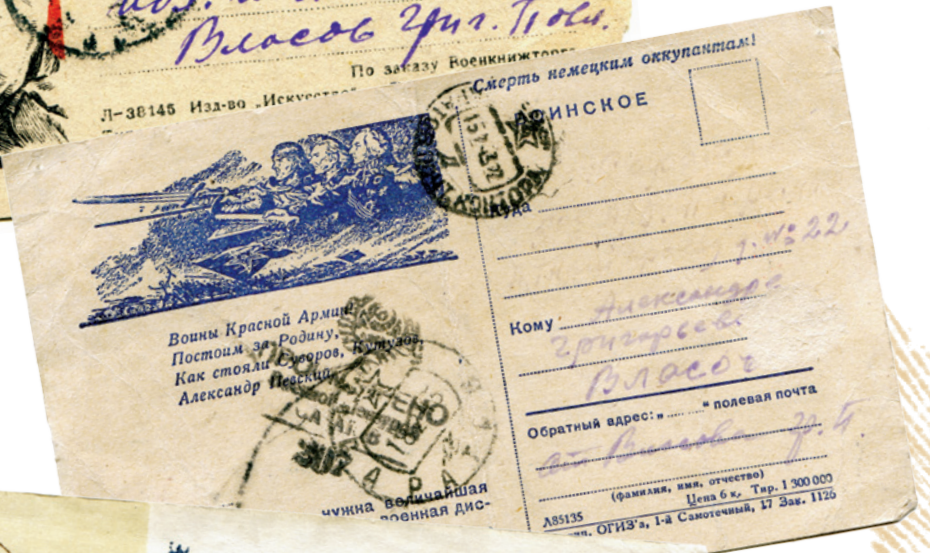 Власов Григ. Павл.
По заказу Военкнижторга
Л-38145 Изд-во „Искусство
Смерть немецким оккупантам!
ВОИНСКОЕ
Куда
д. № 22
Кому Александре
Григорьевне
Власов
Обратный адрес: „ “ полевая почта
от Власова Г. П.
(фамилия, имя, отчество)
Цена 6 к. Тир. 1 300 000
Л85135
ОГИЗ'а, 1-й Самотечный, 17 Зак. 1126
Воины Красной Армии!
Постоим за Родину,
Как стояли Суворов, Кутузов,
Александр Невский.
ПРОСМОТРЕНО
нужна величайшая
военная дис-